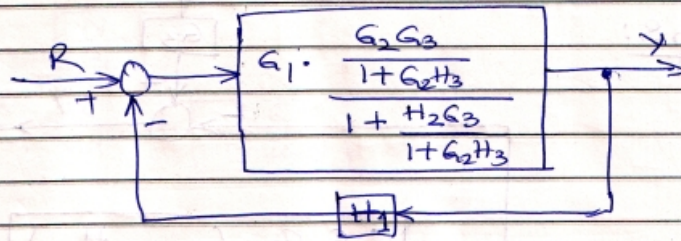 R
+
-
G1 · G2G3
1+G2H3
1 + H2G3
1+G2H3
Y
H1